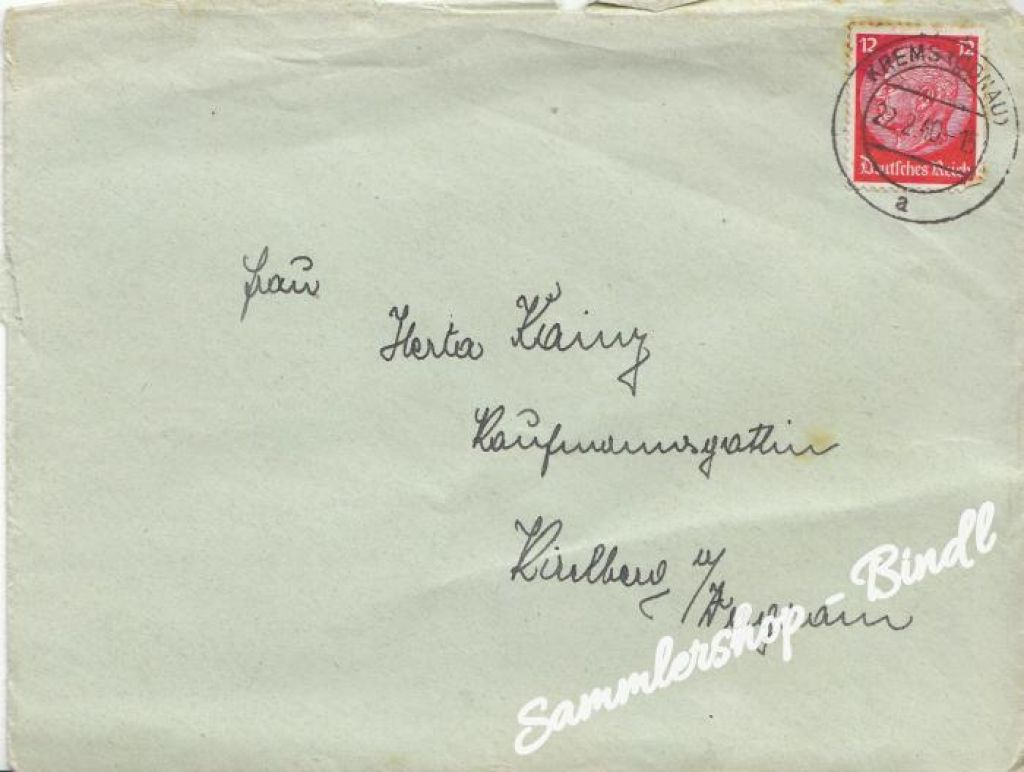 12 12
Deutsches Reich
KREMS (DONAU)
22.2.40
a
Frau
Herta Kainz
Kaufmannsgattin
Kirchberg a/
Wagram
Sammlershop - Bindl